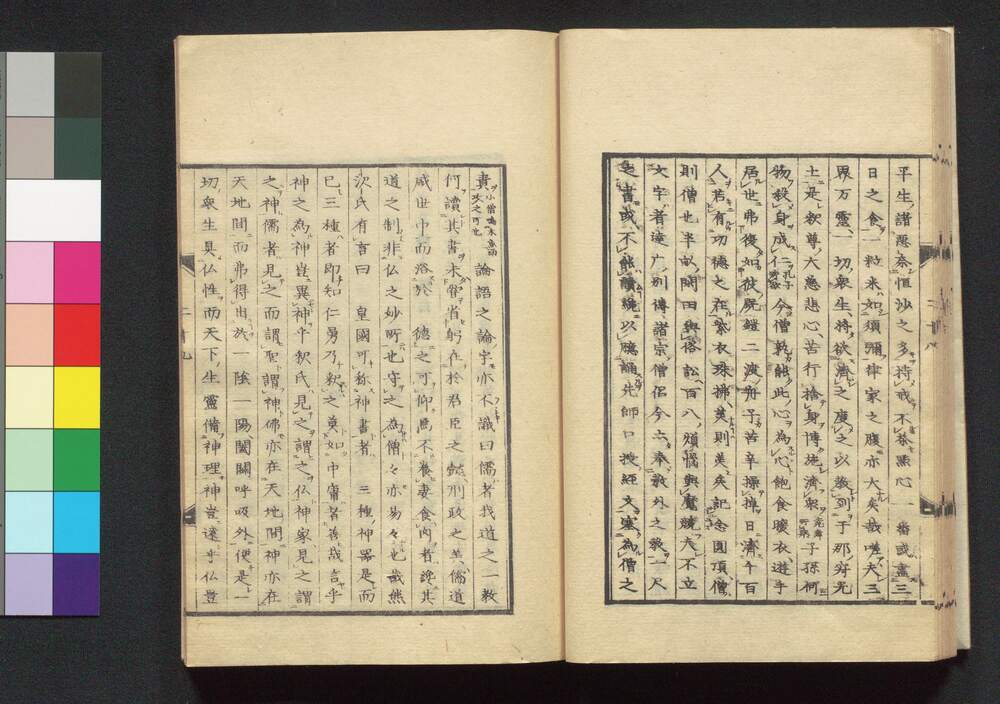 平生諸惡奈恒沙之多持戒不茶點心一番或盡三
日之食一粒米如須彌律家之腹亦大矣哉嗟夫三
界万靈一切衆生将欲濟之度之以敎到于那穿兜
土是釈尊大慈悲心苦行捨身博施濟衆 子孫何
物殺身成仁 今僧孰能此心為心飽食暖衣遊手
居世弗復如彼 鎧二渡舟子苦辛操棹日濟千百
人若有功德之在紫衣珠拂美則美矣記念圓頂僧
則僧也半 問曰與俗訟百八煩惱與魔競夫不立
文字者達广別傳諸宗僧侶今亦奉敎外之敎一尺
之書或不能讀纔以臆誦先師口授經文塞為僧之
責 論語之論字亦不識曰儒者我道之一敎
何讀其書未嘗省躬在於君臣之 刑政之 儒道
盛世中而浴於 德之可仰 不養妻食肉者謗其
道之制非仏之妙所也守之為僧々亦易々也哉然
次氏有言曰 皇國可称神書者 三種神器是而
已三種者即知仁勇乃敎之奠如中庸者善哉言乎
神之為神豈異神乎釈氏見之謂之仏神家見之謂
之神儒者見之而謂聖謂神佛亦在天地間神亦在
天地間而弗得出於一陰一陽闔闢呼吸外便是一
切衆生具仏性而天下生靈備神理神豈遠乎仏豈
二十八
二十九